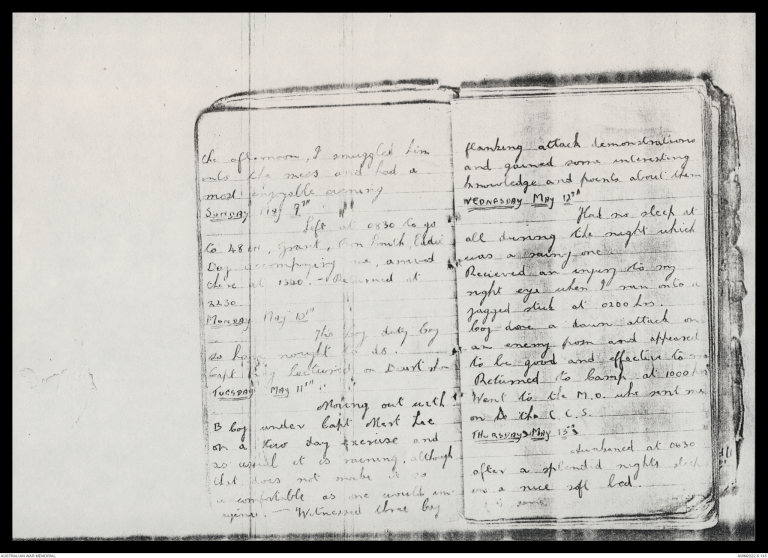 the afternoon, I smuggled him
onto the mess and had a
most enjoyable evening
SUNDAY May 9th
Left at 0830 to go
to 48 Bn, Grant, Smith,
Day accompanying me, arrived
there at 1340. – Returned at
2230
MONDAY May 10th
The Coy duty Coy
so have nought to do.
Capt lectured on
TUESDAY MAY 11th
Moving out with
B Coy under Capt Mert Lee
on a two day exercise and
as usual it is raining, although
that does not make it so
comfortable as one would
– Witnessed three Coy
flanking attack demonstrations
and gained some interesting
knowledge and points about them
WEDNESDAY MAY 12th
Had no sleep at
all during the night which
was a rainy one
Recieved an injury to my
right eye when I ran onto a
jagged stick at 0200 hrs.
Coy done a dawn attack on
an enemy posn and appeared
to be good and effective to
Returned to Camp at 1000 hrs
Went to the M.O. who sent me
on to the C.C.S.
THURSDAY MAY 13th
Awakened at 0630
after a splendid nights sleep
in a nice soft bed.
AUSTRALIAN WAR MEMORIAL